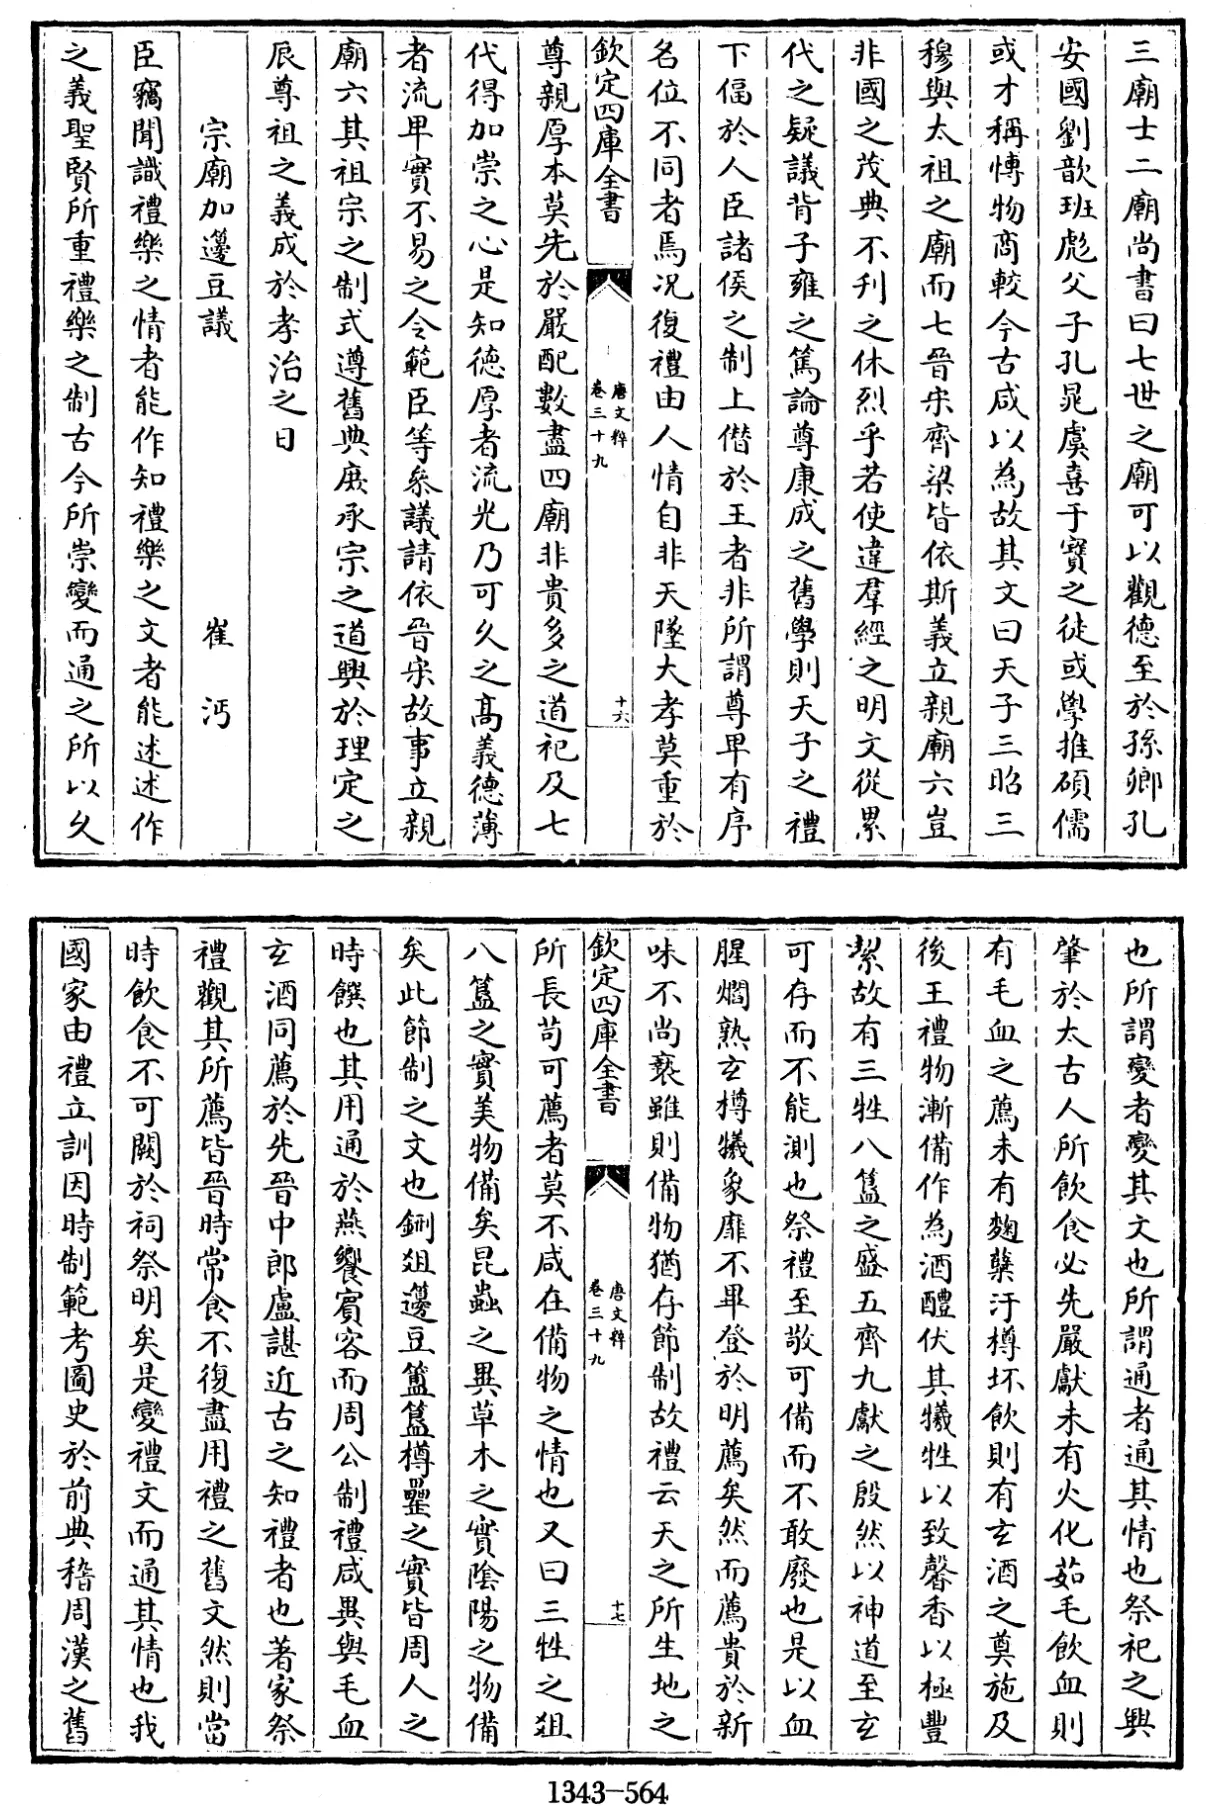 三廟士二廟尚書曰七世之廟可以觀德至於孫卿孔
安國劉歆班彪父子孔晁虞喜于寳之徒或學推碩儒
或才稱博物商較今古咸以為故其文曰天子三昭三
穆與太祖之廟而七晉宋齊梁皆依斯義立親廟六豈
非國之茂典不刋之休烈乎若使違羣經之明文從累
代之疑議背子雍之篤論尊康成之舊學則天子之禮
下偪於人臣諸侯之制上僣於王者非所謂尊卑有序
名位不同者焉况復禮由人情自非天墜大孝莫重於
欽定四庫全書
唐文粹
卷三十九
十六
尊親厚本莫先於嚴配數盡四廟非貴多之道祀及七
代得加崇之心是知德厚者流光乃可久之髙義德薄
者流卑實不易之令範臣等叅議請依晉宋故事立親
廟六其祖宗之制式遵舊典庻承宗之道興於理定之
辰尊祖之義成於孝治之日
宗廟加籩豆議 崔沔
臣竊聞識禮樂之情者能作知禮樂之文者能述述作
之義聖賢所重禮樂之制古今所崇變而通之所以久
也所謂變者變其文也所謂通者通其情也祭祀之興
肇於太古人所飲食必先嚴獻未有火化茹毛飲血則
有毛血之薦未有麴櫱汙樽坏飲則有玄酒之奠施及
後王禮物漸備作為酒醴伏其犧牲以致馨香以極豐
絜故有三牲八簋之盛五齊九獻之殷然以神道至玄
可存而不能測也祭禮至敬可備而不敢廢也是以血
腥爓熟玄樽犧象靡不畢登於明薦矣然而薦貴於新
味不尚褻雖則備物猶存節制故禮云天之所生地之
欽定四庫全書
唐文粹
卷三十九
十七
所長苟可薦者莫不咸在備物之情也又曰三牲之俎
八簋之實美物備矣昆蟲之異草木之實陰陽之物備
矣此節制之文也鉶俎籩豆簠簋樽罍之實皆周人之
時饌也其用通於燕饗賓客而周公制禮咸異與毛血
玄酒同薦於先晉中郎盧諶近古之知禮者也著家祭
禮觀其所薦皆晉時常食不復盡用禮之舊文然則當
時飲食不可闕於祠祭明矣是變禮文而通其情也我
國家由禮立訓因時制範考圖史於前典稽周漢之舊
1343-564